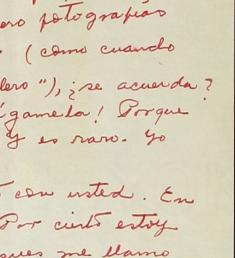 ero fotografías
(como cuando
lero"), ¿se acuerda?
ígamela! Porque
Y es raro. Yo
con usted. En
Por cierto estoy
ques me llamo